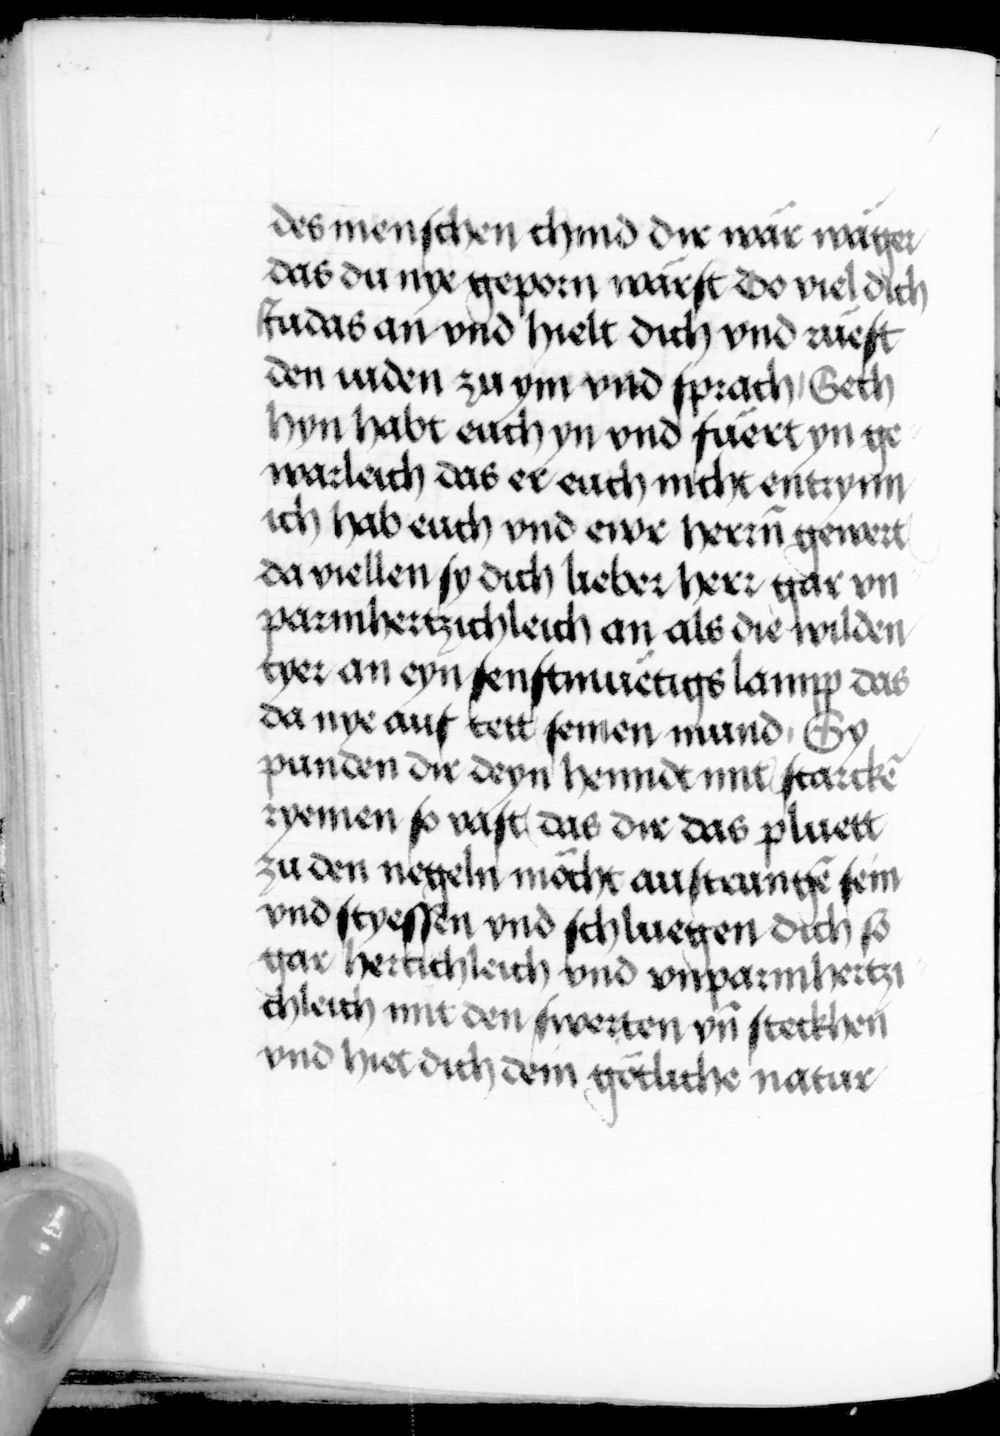 des menschen chind dir wär wäger
das du nye geporn wärst Do viel dich
Judas an vnd hielt dich vnd rüest
den iuden zu ym vnd sprach Sech
hyn habt euch yn vnd füert yn ge
warleich das er euch nicht entrynn
ich hab euch vnd ewr herrn̄ gewert
da viellen sy dich lieber herr gar vn
parmhertzichleich an als die wilden
tyer an eyn senftmüetigs lamp das
da nye auf tett seinen mund Sy
punden dir deyn henndt mit starckē
ryemen so vast das dir das pluett
zu den negeln möcht austrungē sein
vnd styessen vnd schluegen dich so
gar herttichleich vnd vnparmhertzi
chleich mit den swerten vn̄ steckhen
vnd hiet dich dein götliche natur